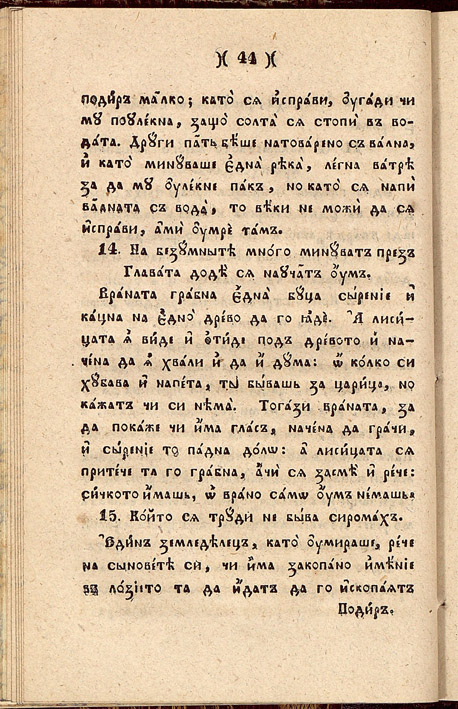 )( 44 )(
поди́ръ ма́лко; като̀ сѧ и҆спра́ви, ѹ҆га́ди чи
мѹ поѹле́кна, защо̀ солта̀ сѧ стопѝ въ во-
да́та. Дрѹ́ги па́тъ бѣ́ше натова́рено съ ва́лна,
и҆ като̀ минѹ́ваше є҆дна̀ рѣка̀, ле́гна ва́трѣ
за да мѹ ѹ҆ле́кне па́къ, но като̀ сѧ напѝ
ва́лната съ вода̀, то вѣ́ки не мо́жи да сѧ
и҆спра́ви, а҆́ми ѹ҆мрѐ та́мъ.
14. На безѹ́мнытѣ мно́го минѹ́ватъ презъ
Глава́та доде́ сѧ наѹча́тъ ѹ҆́мъ.
Вра́ната гра́бна є҆дна̀ бѹ́ца сы́реніе и҆
ка́цна на є҆дно̀ дре́во да го ꙗ҆де́. А҆ лиси́-
цата ѧ҆ ви́де и҆ ѻ҆ти́де подъ дре́вото и҆ на-
че́на да ѧ҆ хва́ли и҆ да и҆̀ дѹ́ма: ѽ ко́лко си
хѹ́бава и҆ напе́та, ты̀ быва́шь за цари́ца, но
ка́жатъ чи си нѣ́ма. Тога́зи вра́ната, за
да пока́же чи и҆́ма гла́съ, наче́на да гра́чи,
и҆ сы́реніе то па́дна до́лѡ: а҆ лиси́цата сѧ
прите́че та го гра́бна, а҆́чи сѧ засмѣ̀ и҆ ре́че:
си́чкото и҆́машь, ѽ вра́но са́мѡ ѹ҆́мъ не́машь.
15. Ко́йто сѧ трѹ́ди не бы́ва сирома́хъ.
Є҆ди́нъ земледѣ́лецъ, като̀ ѹ҆мира́ше, ре́че
на сынове́тѣ сѝ, чи и҆́ма закопа́но и҆мѣ́ніе
въ ло́зіето та да и҆́датъ да го и҆скопа́ѧтъ
Поди́ръ.